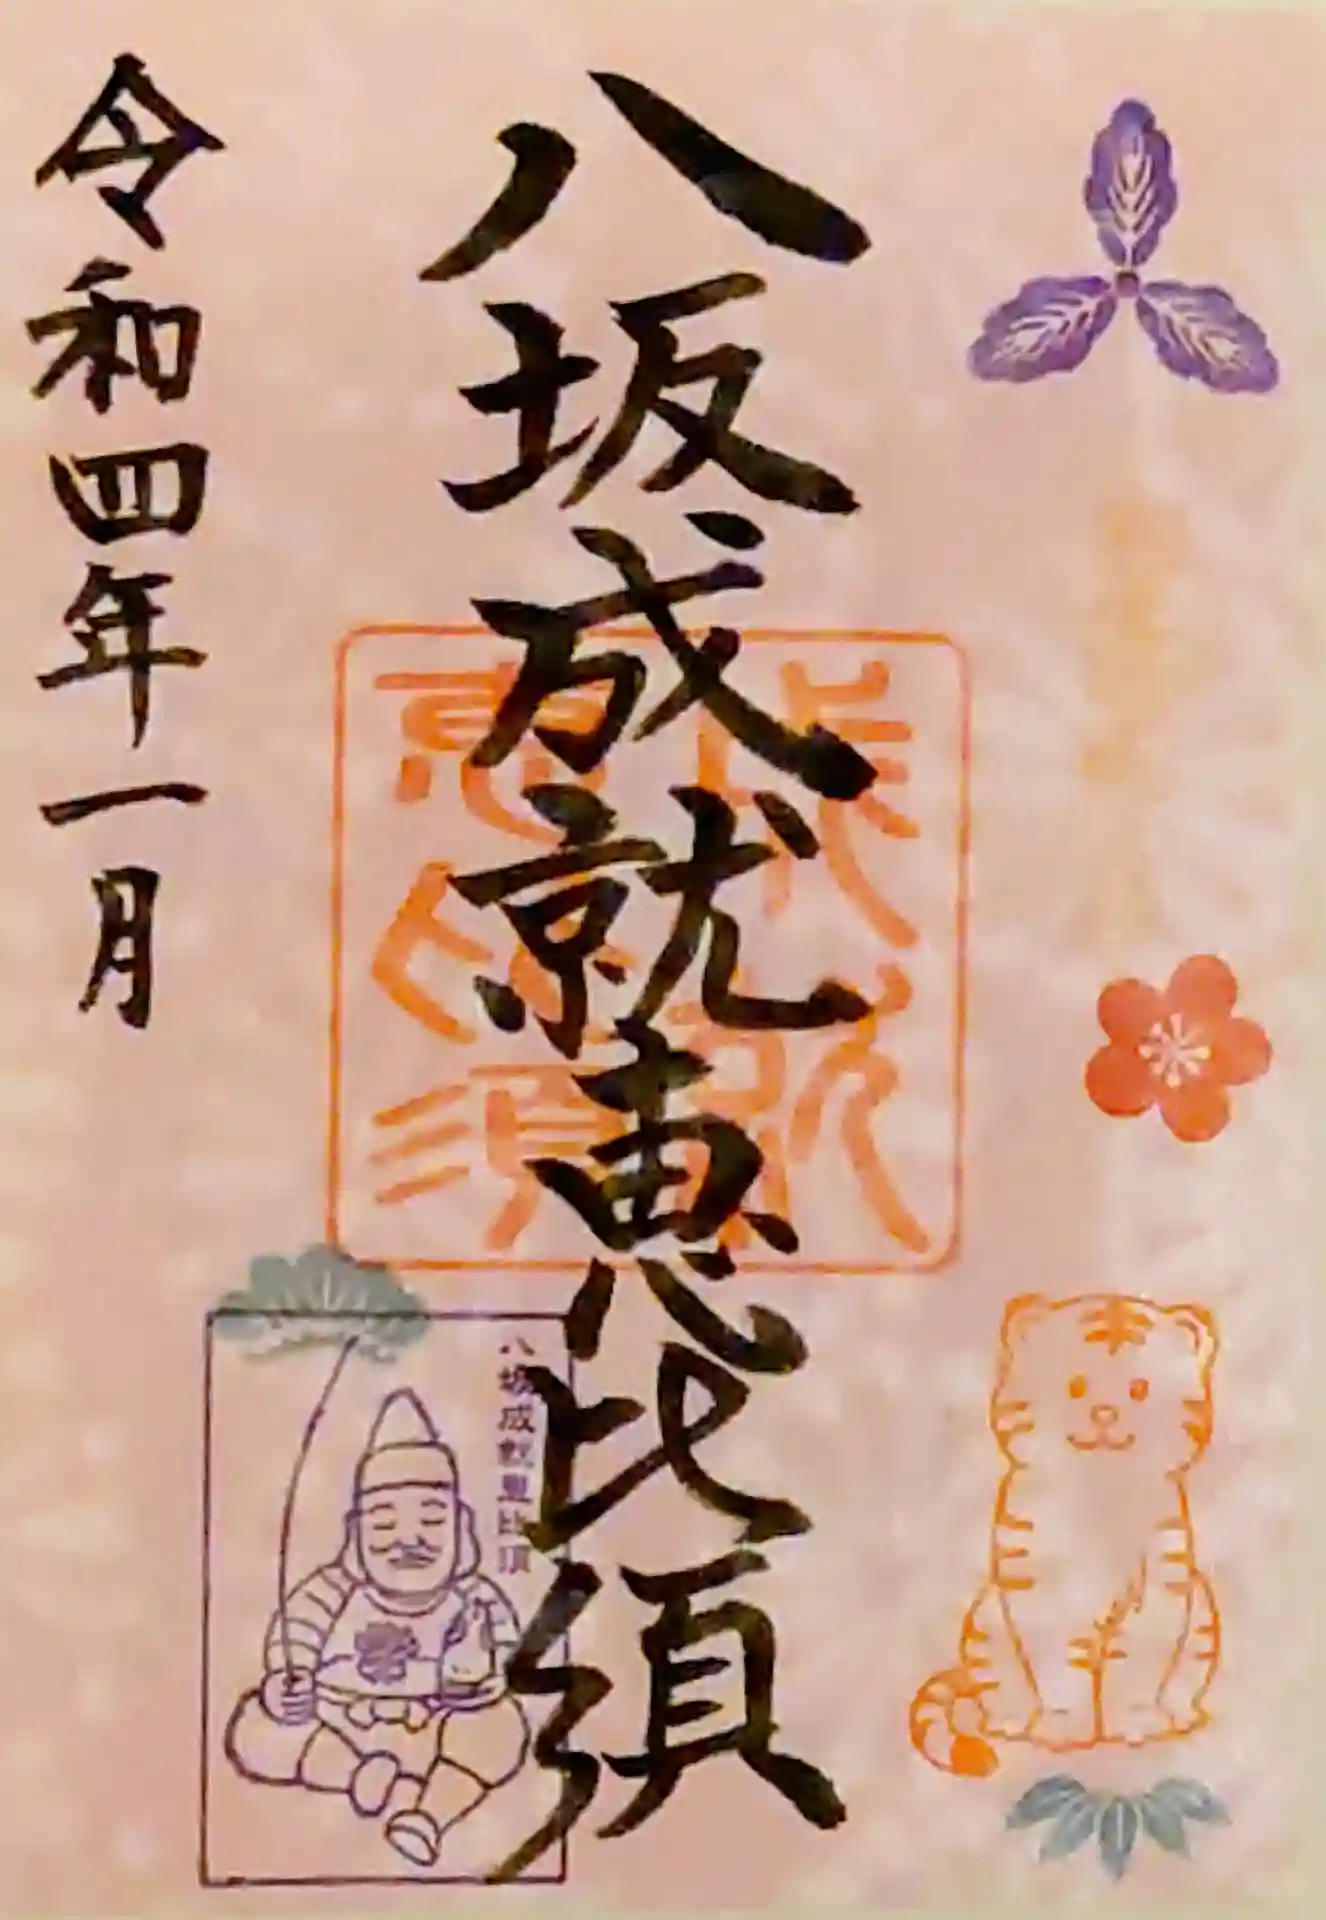 八坂成就恵比須
成就
恵比須
八坂成就恵比須
令和四年一月